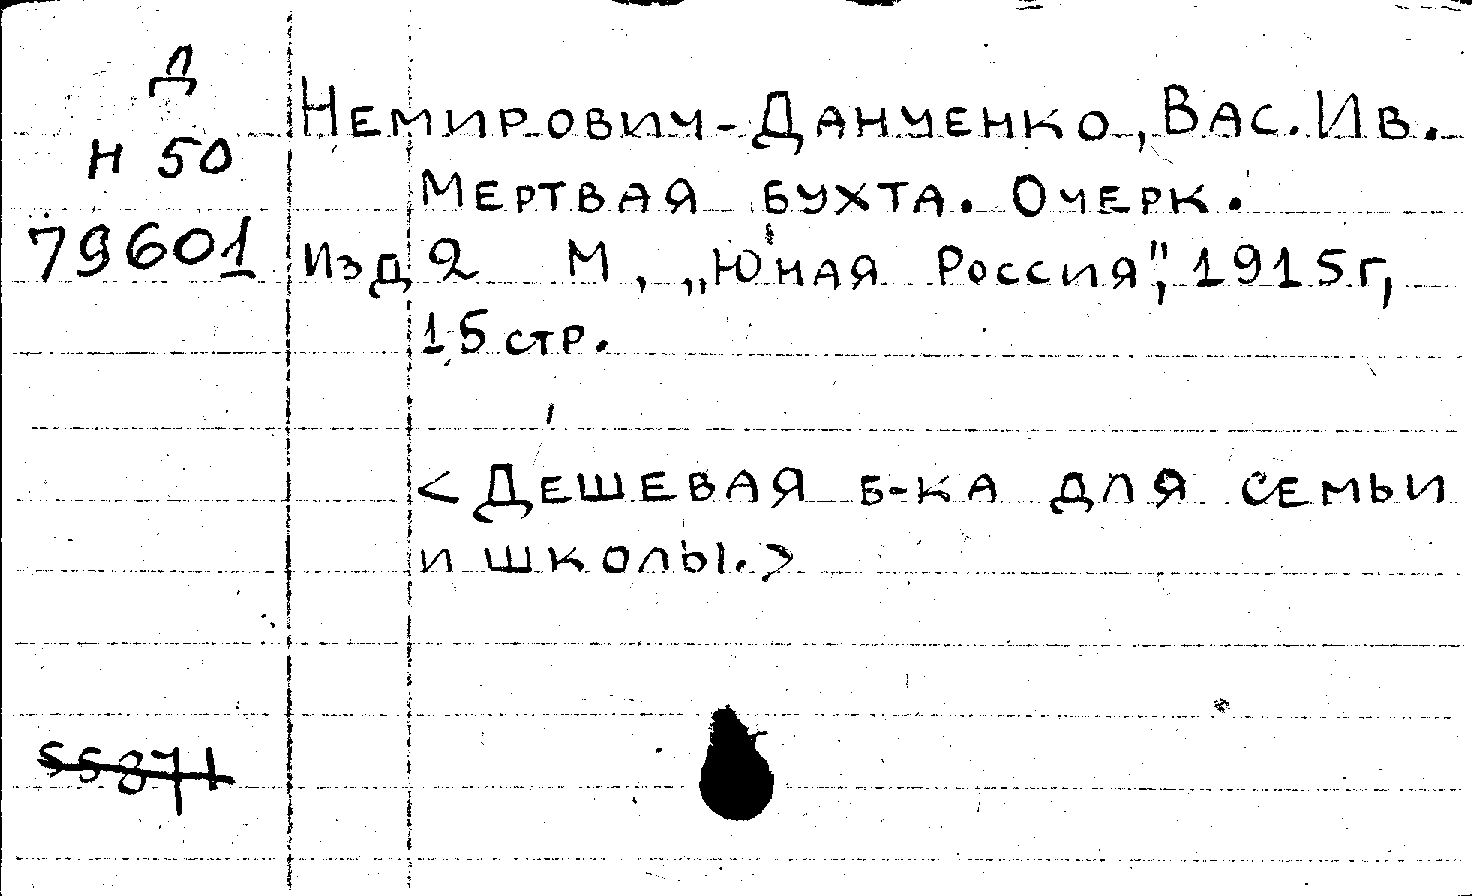 Д
Н 50
79601
Немирович-Данченко, Вас. Ив.
Мертвая бухта. Очерк.
Изд 2 М, „Юная Россия", 1915г,
15 стр.
<Дешевая б-ка для семьи
и школы.>
55871